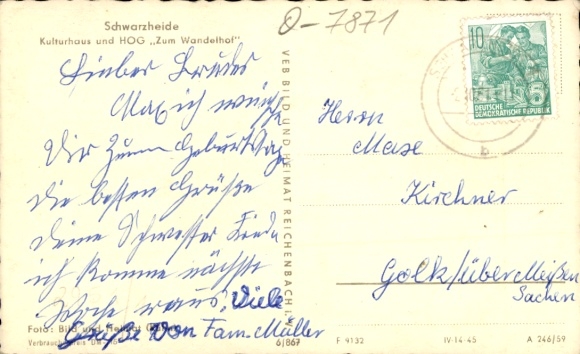 Schwarzheide
Kulturhaus und HOG „Zum Wandelhof"
O-7871
Lieber Bruder
Max ich wünsche
Dir zum Geburtstag
die besten Grüße
deine Schwester Frieda
ich komme nächste
Woche raus. Viele
Grüße Von Fam. Müller
Foto: Bild und Heimat
Verbraucherpreis DM
6/867
VEB BILD UND HEIMAT REICHENBACH I. V.
10
5
DEUTSCHE
DEMOKRATISCHE REPUBLIK
b
Herrn
Maxe
Kirchner
Golk/über Meißen
Sachen
F 9132
IV-14-45
A 246/59